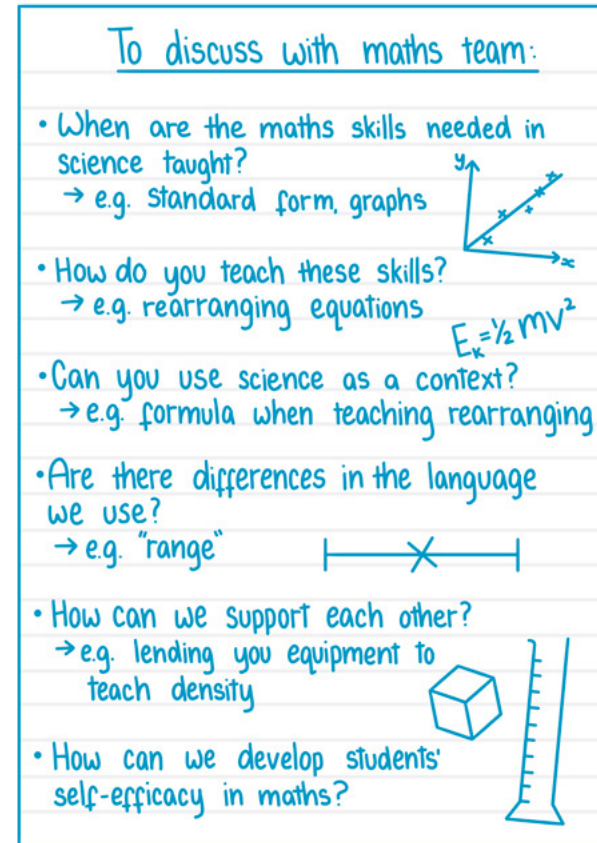 To discuss with maths team:
• When are the maths skills needed in
science taught?
→ e.g. standard form, graphs
y
x
• How do you teach these skills?
→ e.g. rearranging equations
Eₖ=½mv²
• Can you use science as a context?
→ e.g. formula when teaching rearranging
• Are there differences in the language
we use?
→ e.g. "range"
• How can we support each other?
→ e.g. lending you equipment to
teach density
• How can we develop students'
self-efficacy in maths?